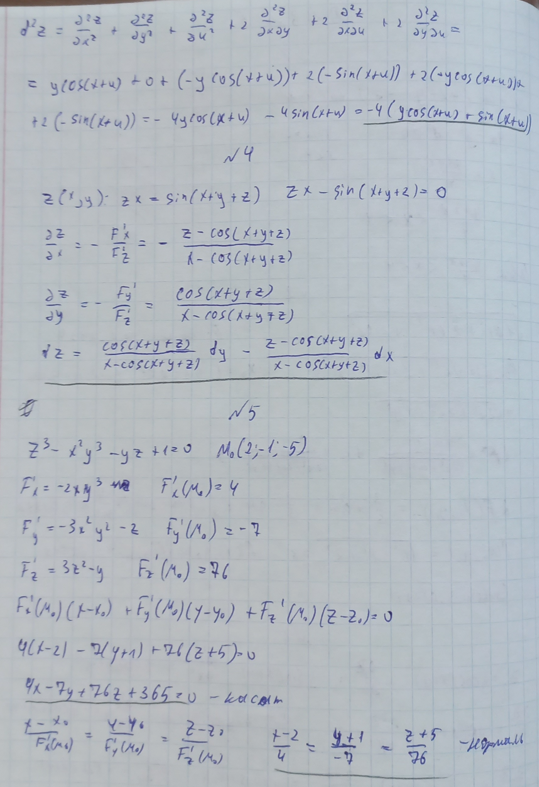 d²z = ∂²z/∂x² + ∂²z/∂y² + ∂²z/∂u² + 2 ∂²z/∂x∂y + 2 ∂²z/∂x∂u + 2 ∂²z/∂y∂u =
= y cos(x+u) + 0 + (-y cos(x+u)) + 2(-sin(x+u)) + 2(-y cos(x+u)) +
+ 2(-sin(x+u)) = - 4y cos(x+u) - 4 sin(x+u) = -4(y cos(x+u) + sin(x+u))
№4
z(x,y): zx = sin(x+y+z) zx - sin(x+y+z) = 0
∂z/∂x = - F'x/F'z = - (z - cos(x+y+z))/(x - cos(x+y+z))
∂z/∂y = - Fy'/Fz' = cos(x+y+z)/(x - cos(x+y+z))
dz = cos(x+y+z)/(x-cos(x+y+z)) dy - (z - cos(x+y+z))/(x - cos(x+y+z)) dx
№5
z³ - x²y³ - yz + 1 = 0 M₀(2;-1;-5)
F'x = -2xy³ F'x(M₀) = 4
Fy' = -3x²y² - z Fy'(M₀) = -7
Fz' = 3z² - y Fz'(M₀) = 76
Fx'(M₀)(x-x₀) + Fy'(M₀)(y-y₀) + Fz'(M₀)(z-z₀) = 0
4(x-2) - 7(y+1) + 76(z+5) = 0
4x - 7y + 76z + 365 = 0 - касат
(x-x₀)/F'x(M₀) = (y-y₀)/F'y(M₀) = (z-z₀)/F'z(M₀) (x-2)/4 = (y+1)/-7 = (z+5)/76 - нормаль